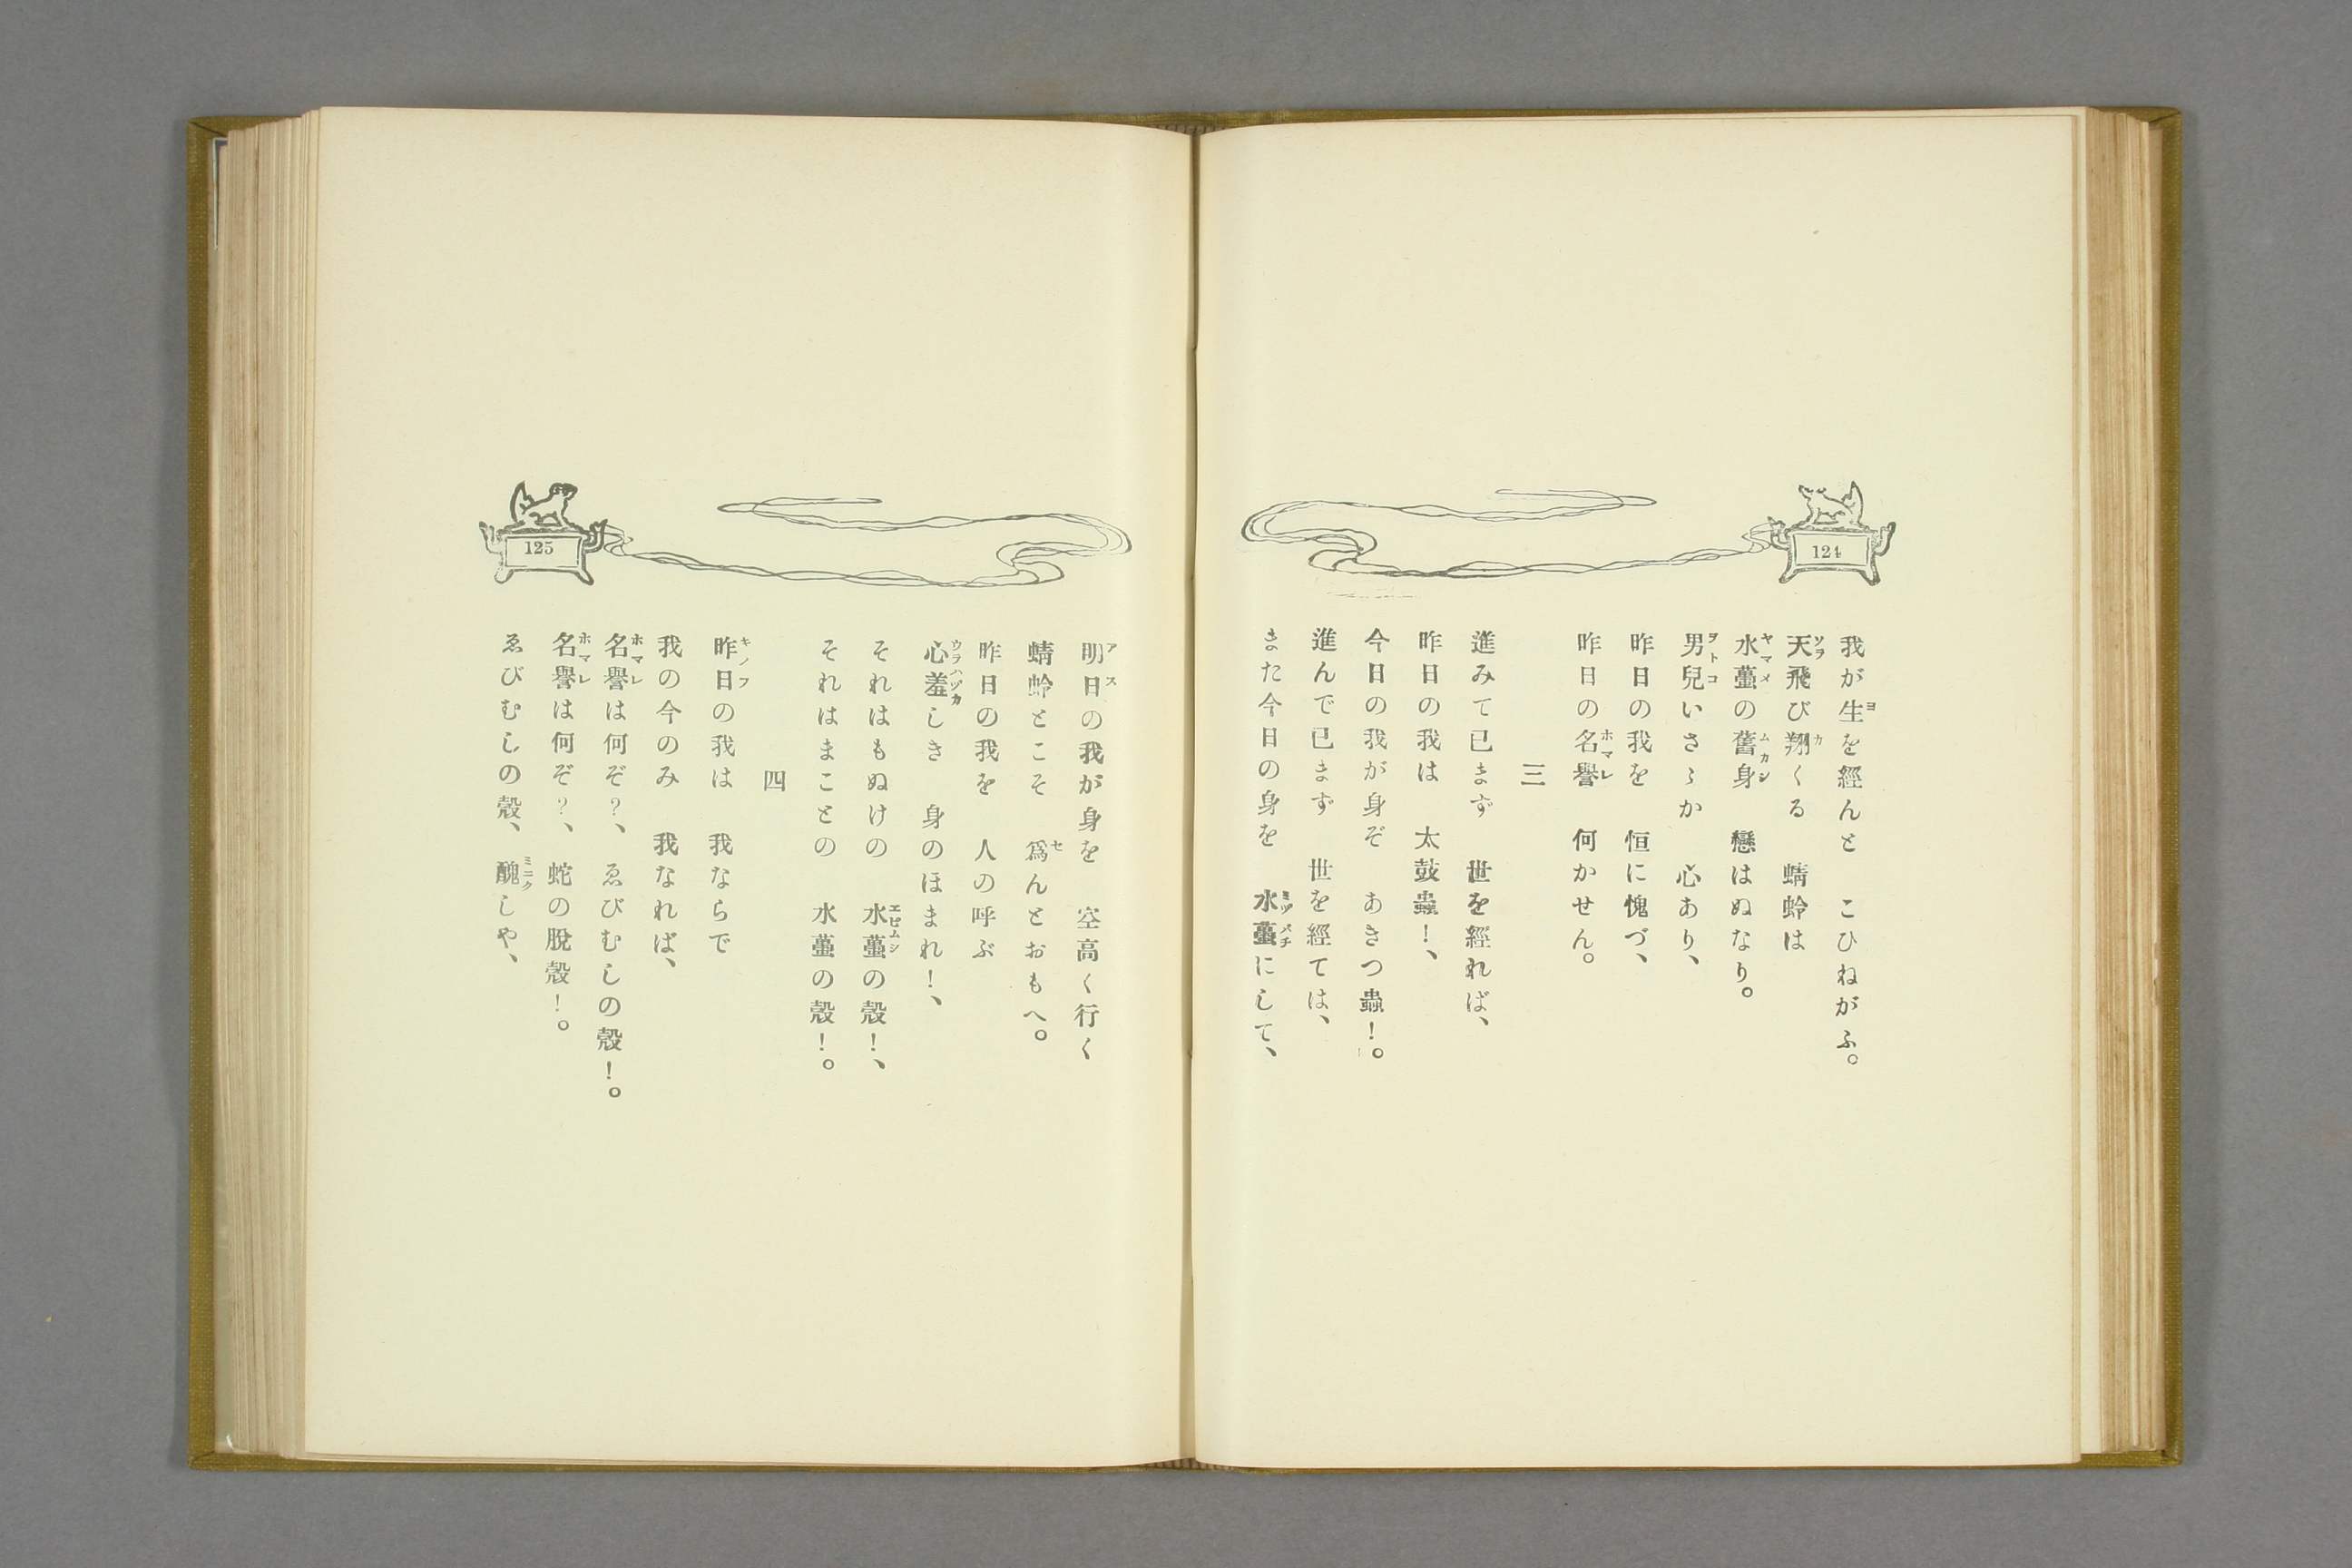 124
我が生を經んと　こひねがふ。
天飛び翔くる　蜻蛉は
水蠆の舊身　戀はぬなり。
男兒いさゝか　心あり、
昨日の我を　恒に愧づ、
昨日の名譽　何かせん。
三
進みて已まず　世を經れば、
昨日の我は　太鼓蟲！、
今日の我が身ぞ　あきつ蟲！。
進んで已まず　世を經ては、
また今日の身を　水蠆にして、
125
明日の我が身を　空高く行く
蜻蛉とこそ　爲んとおもへ。
昨日の我を　人の呼ぶ
心羞しき　身のほまれ！、
それはもぬけの　水蠆の殼！、
それはまことの　水蠆の殼！。
四
昨日の我は　我ならで
我の今のみ　我なれば、
名譽は何ぞ？、　ゑびむしの殼！。
名譽は何ぞ？、　蛇の脫殼！。
ゑびむしの殼、　醜しや、